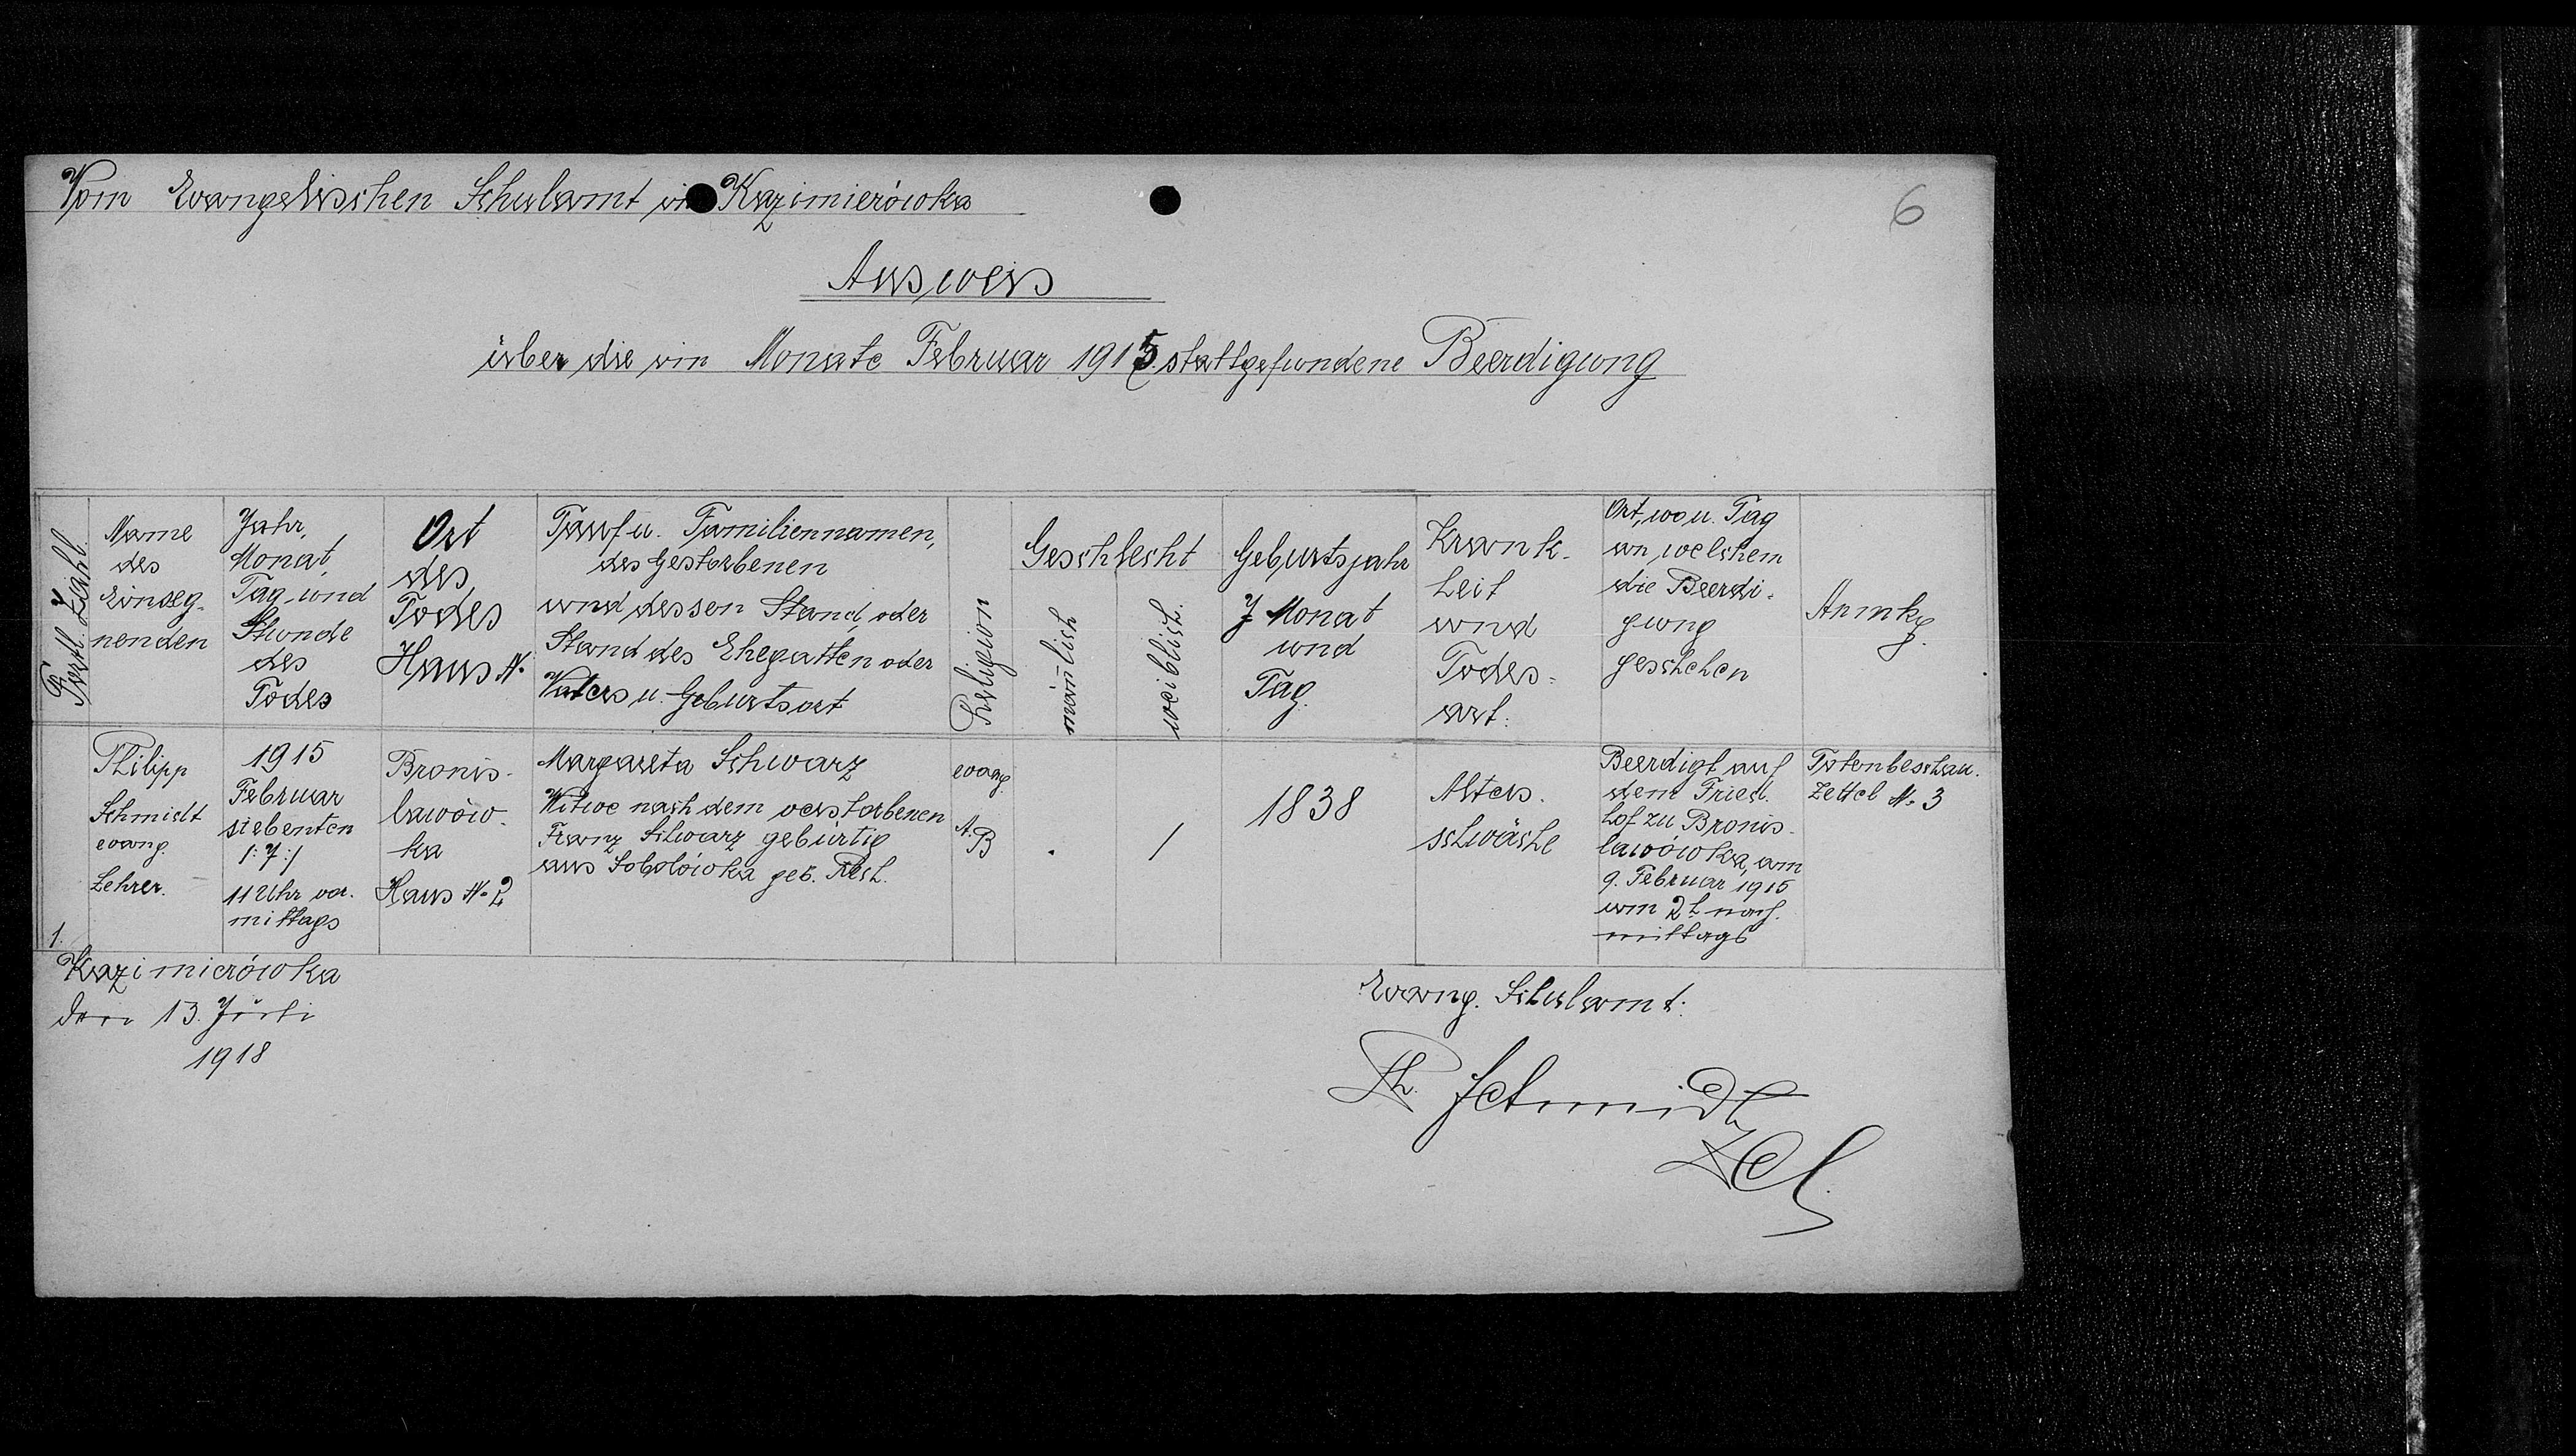 Vom Evangelischen Schulamt in Kazimierówka
6
Ausweis
über die im Monate Februar 1915 stattgefundene Beerdigung
Fortl. Zahl.
Name
des
Einseg-
nenden
Jahr,
Monat,
Tag, und
Stunde
des
Todes
Ort
des
Todes
Haus №
Tauf u. Familiennamen,
des Gestorbenen
und dessen Stand, oder
Stand des Ehegatten oder
Vaters u. Geburtsort
Religion
Geschlecht
mäñlich
weiblich.
Geburtsjahr
J Monat
und
Tag.
Krank-
heit
und
Todes-
art:
Ort, wo u. Tag
an welchem
die Beerdi-
gung
geschehen
Anmkg.
1.
Philipp
Schmidt
evang.
Lehrer.
1915
Februar
siebenten
/:7:/
11 Uhr vor.
mittags
Bronis-
lawów-
ka
Haus № 2
Margareta Schwarz
Witwe nach dem verstorbenen
Franz Schwarz gebürtig
aus Sobolówka geb.
evang.
A.B
.
/
1838
Alters-
schwäche
Beerdigt auf
dem Fried-
hof zu Bronis-
lawówka, am
9. Februar 1915
um 2h nach-
mittags
Totenbeschau-
Zettel № 3
Kazimierówka
den 13. Juli
1918
Evang. Schulamt:
Ph. Schmidt